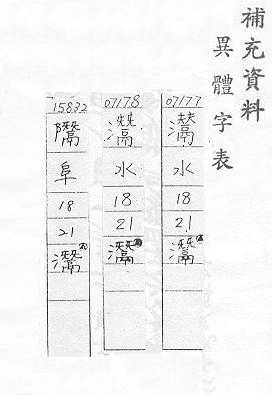 補充資料
異體字表
07177
水
18
21
灊
07178
水
18
21
灊
15832
阜
18
21
灊